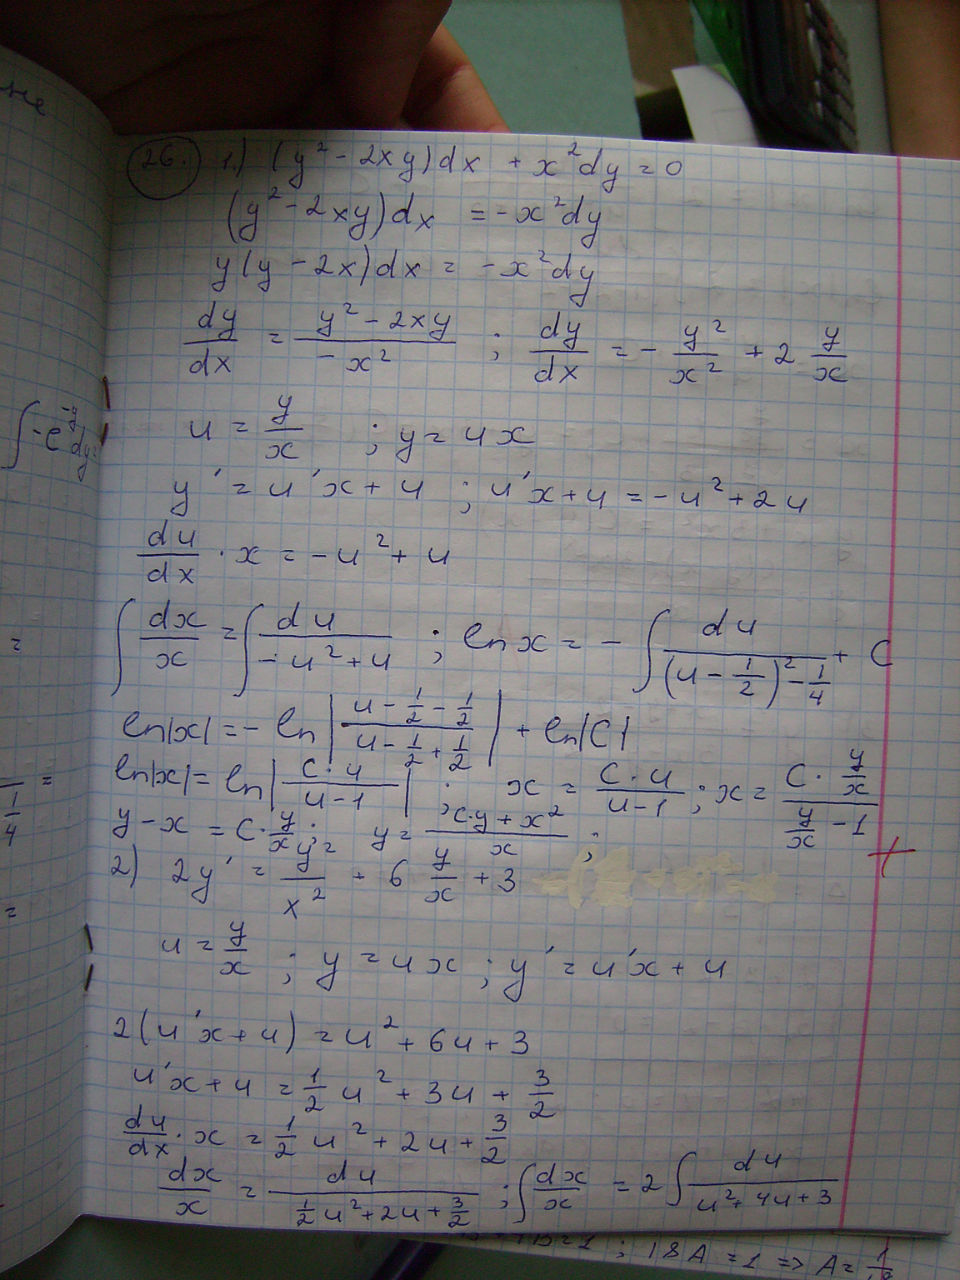 не
26. 1.) (y² - 2xy)dx + x²dy = 0
(y² - 2xy)dx = -x²dy
y(y - 2x)dx = -x²dy
dy/dx = (y² - 2xy)/(-x²) ; dy/dx = - y²/x² + 2 y/x
∫-e^-y dy=
u = y/x ; y = ux
y' = u'x + u ; u'x + u = -u² + 2u
du/dx · x = -u² + u
=
∫ dx/x = ∫ du/(-u² + u) ; ln x = - ∫ du/((u - 1/2)² - 1/4) + C
ln|x| = - ln |(u - 1/2 - 1/2)/(u - 1/2 + 1/2)| + ln|C|
ln|x| = ln |(C · u)/(u - 1)| ; x = (C · u)/(u - 1) ; x = (C · y/x)/(y/x - 1)
=
1/4
y - x = C · y/x ; y = (C·y + x²)/x ;
2) 2y' = y²/x² + 6 y/x + 3
=
u = y/x ; y = ux ; y' = u'x + u
2(u'x + u) = u² + 6u + 3
u'x + u = 1/2 u² + 3u + 3/2
du/dx · x = 1/2 u² + 2u + 3/2
dx/x = du/(1/2 u² + 2u + 3/2) ; ∫ dx/x = 2 ∫ du/(u² + 4u + 3)
=1 ; 18A = 1 => A = 1